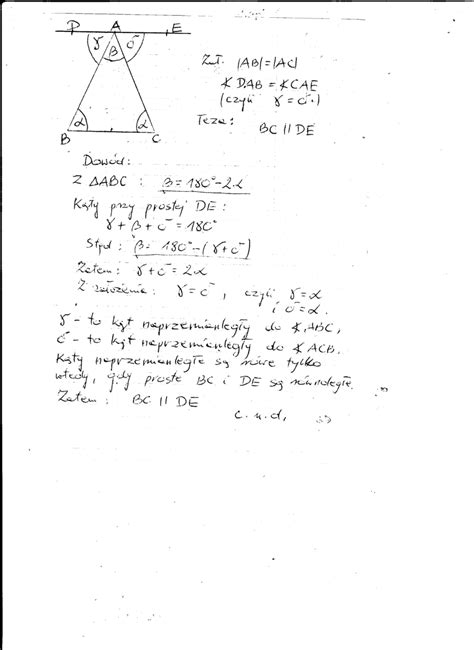 D A E
γ β δ
α α
B C
Zał. |AB|=|AC|
∢ DAB = ∢ CAE
(czyli γ = δ.)
Teza:
BC || DE
Dowód:
Z ΔABC : β = 180° - 2α
Kąty przy prostej DE :
γ + β + δ = 180°
Stąd : β = 180° - (γ + δ)
Zatem : γ + δ = 2α
Z założenia : γ = δ , czyli γ = α
i δ = α .
γ - to kąt naprzemianległy do ∢ ABC,
δ - to kąt naprzemianległy do ∢ ACB.
Kąty naprzemianległe są równe tylko
wtedy, gdy proste BC i DE są równoległe.
Zatem : BC || DE
c. n. d.